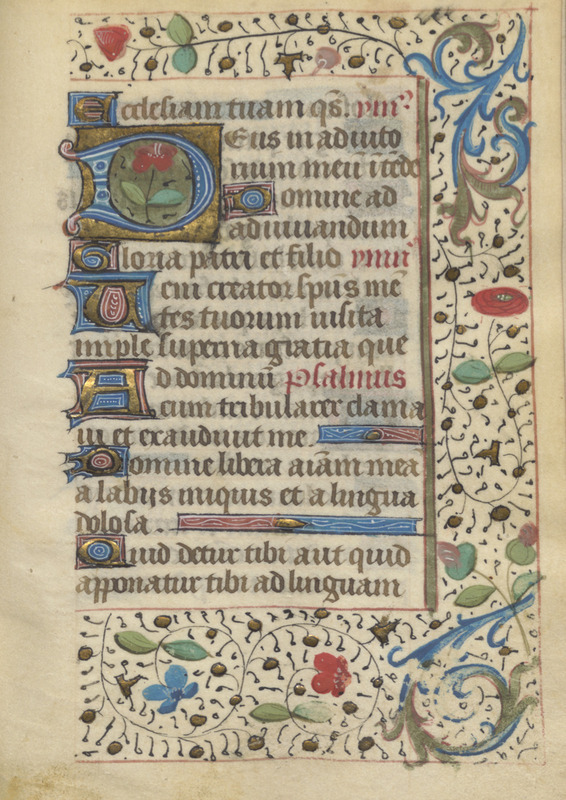 Ecclesiam tuam qs̄. ymꝰ
Deus in adiuto
rium meū ītēde
Domine ad
adiuuandum
Gloria patri et filio ymnꝰ
Veni creator sp̄us mē
tes tuorum uisita
imple superna gratia que
Ad dominū psalmus
cum tribularer clama
ui et exaudiuit me
Domine libera aīam mea
a labijs iniquis et a lingua
dolosa
Quid detur tibi aut quid
apponatur tibi ad linguam